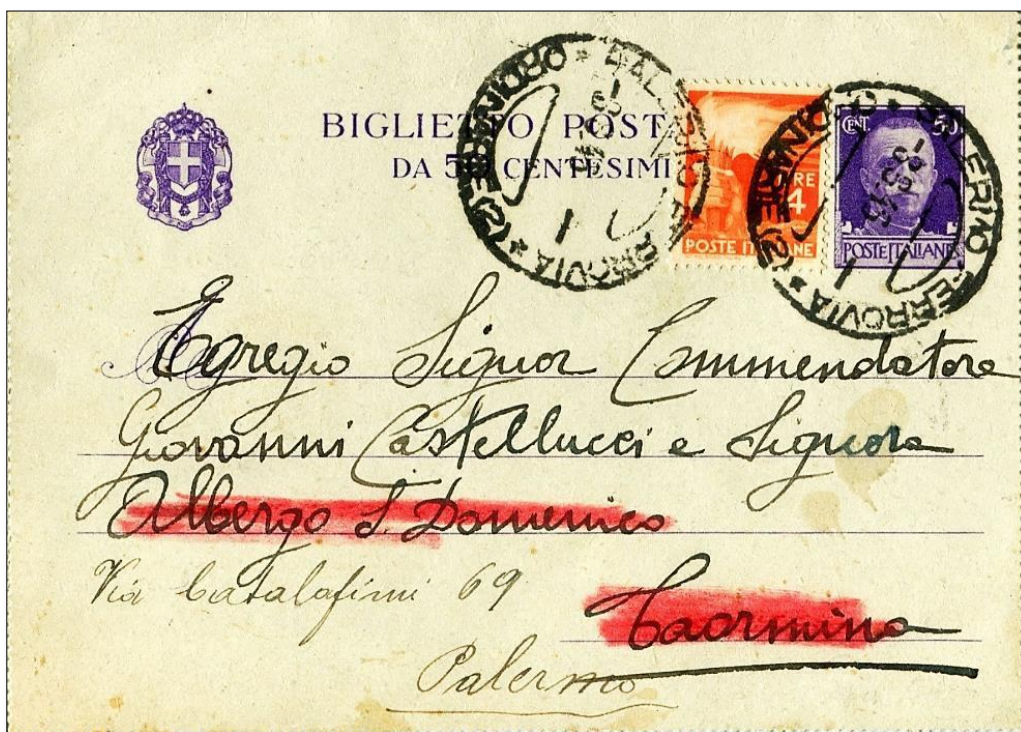 BIGLIETTO POSTA
DA 50 CENTESIMI
SALERNO FERROVIA
ORDINARIE (2)
LIRE
4
POSTE ITALIANE
CENT. 50
POSTE ITALIANE
SALERNO FERROVIA
ORDINARIE (2)
Egregio Signor Commendatore
Giovanni Castellucci e Signora
Albergo S. Domenico
Via Catalafimi 69
Taormina
Palermo